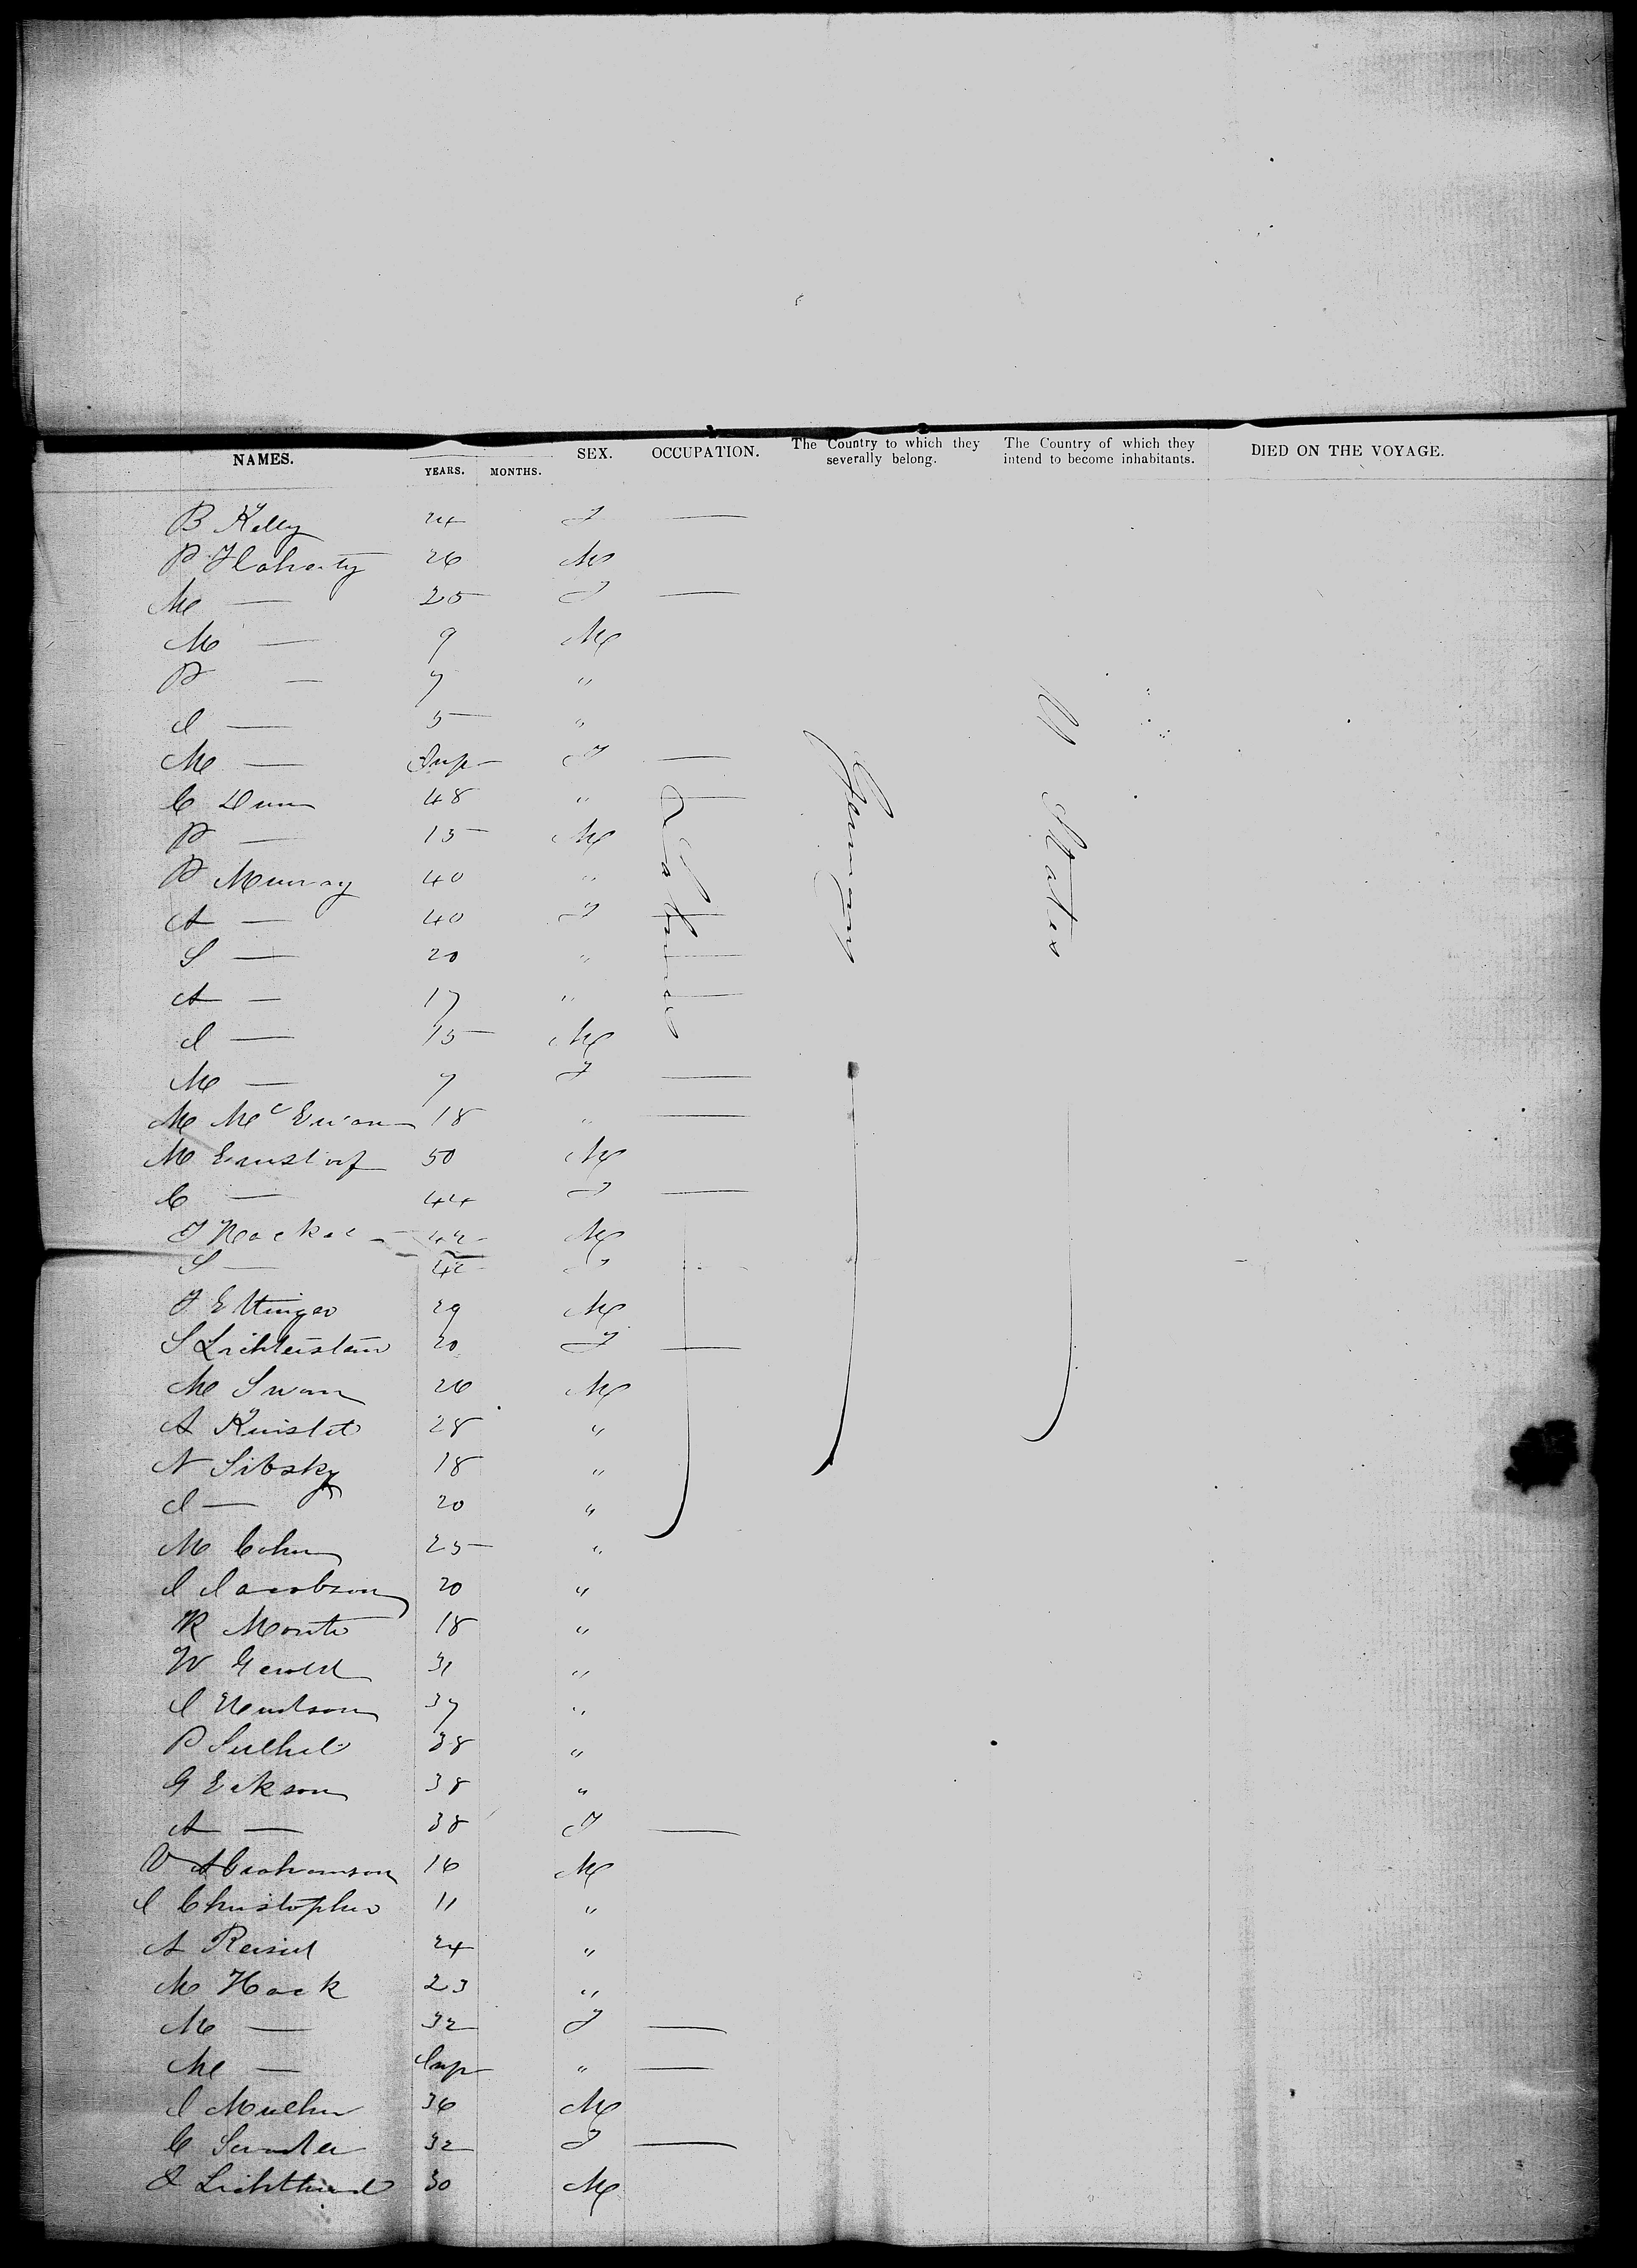 NAMES. YEARS. MONTHS. SEX. OCCUPATION. The Country to which they severally belong. The Country of which they intend to become inhabitants. DIED ON THE VOYAGE.
B Kelly 24 F —
P Flaherty 26 M
M — 25 F —
M — 9 M
P — 7 "
J — 5 "
M — Inf F —
C Dunn 48 " —
P — 15 M
P Murray 40 "
A — 40 F —
S — 20 " —
A — 17 " —
J — 15 M
M — 7 F —
Laborer
Germany
U States
M McEwan 18 " —
M 50 M
C — 44 F —
42 M
S — 42 F —
J Ettinger 29 M
S Lichtenstein 20 F —
M Swan 26 M
A 28 "
N Sibsky 18 "
J — 20 "
M Cohn 25 "
J Jacobson 20 "
R 18 "
W Gerold 31 "
J 37 "
P 38 "
G Erkson 38 "
A — 38 F —
V Abrahamson 16 M
J Christopher 11 "
A 24 "
M Hock 23 "
M — 32 F —
M — Inf " —
J Muller 36 M
C 32 F —
30 M